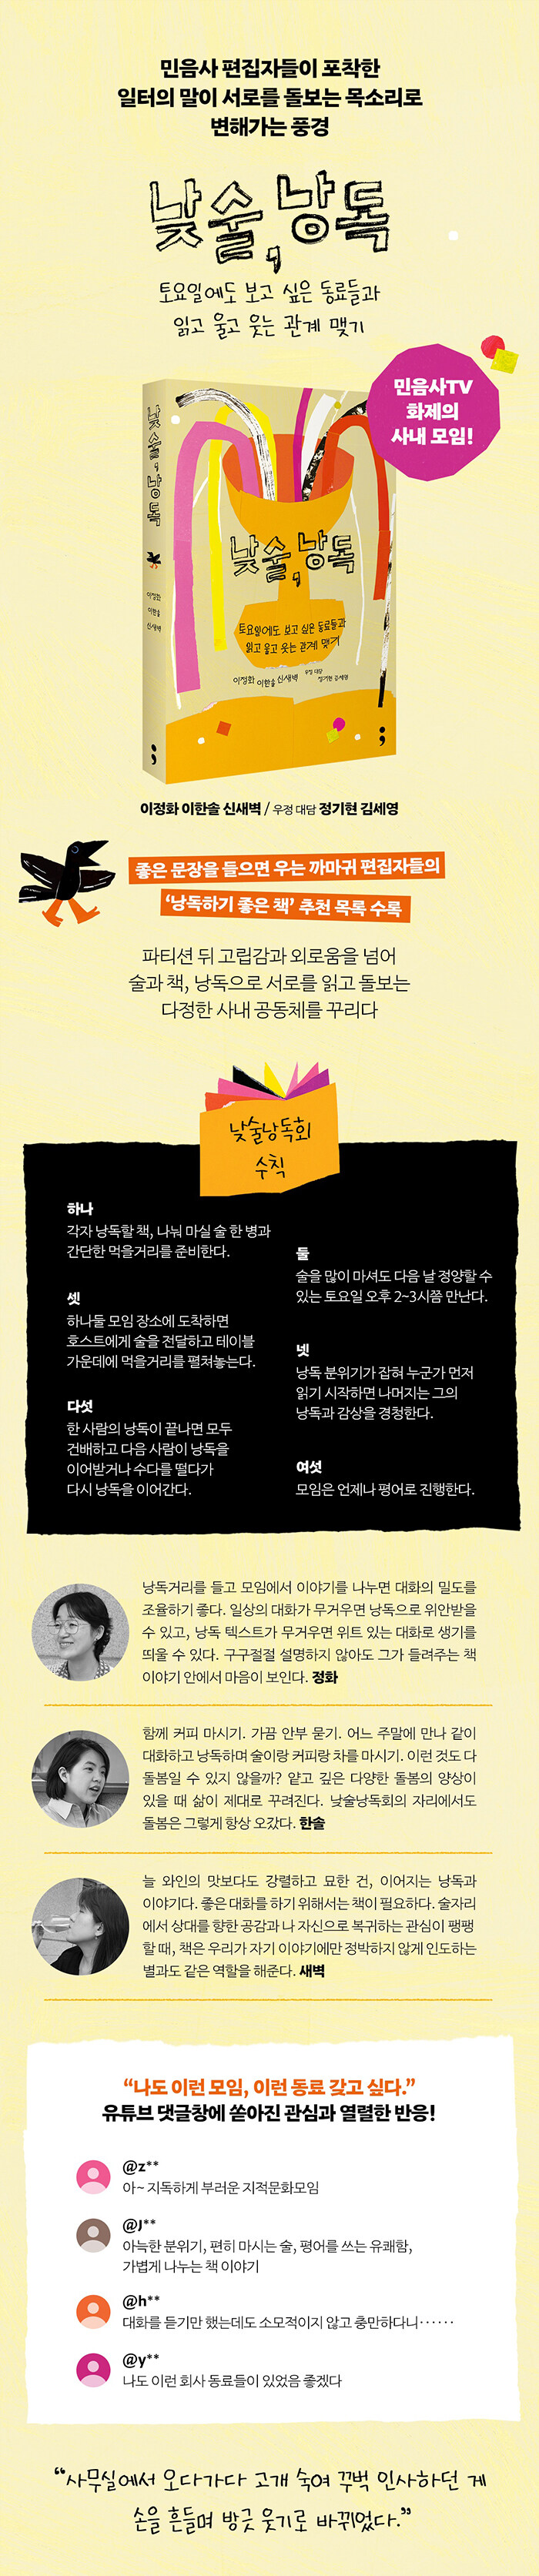 민음사 편집자들이 포착한
일터의 말이 서로를 돌보는 목소리로
변해가는 풍경
낮술, 낭독
토요일에도 보고 싶은 동료들과
읽고 울고 웃는 관계 맺기
민음사TV
화제의
사내 모임!
낮술, 낭독
이정화
이한솔
신새벽
;
낮술, 낭독
토요일에도 보고 싶은 동료들과
읽고 울고 웃는 관계 맺기
이정화 이한솔 신새벽 우정 대담 정기현 김세영
;
이정화 이한솔 신새벽 / 우정 대담 정기현 김세영
좋은 문장을 들으면 우는 까마귀 편집자들의
‘낭독하기 좋은 책’ 추천 목록 수록
파티션 뒤 고립감과 외로움을 넘어
술과 책, 낭독으로 서로를 읽고 돌보는
다정한 사내 공동체를 꾸리다
낮술낭독회
수칙
하나
각자 낭독할 책, 나눠 마실 술 한 병과
간단한 먹을거리를 준비한다.
둘
술을 많이 마셔도 다음 날 정양할 수
있는 토요일 오후 2~3시쯤 만난다.
셋
하나둘 모임 장소에 도착하면
호스트에게 술을 전달하고 테이블
가운데에 먹을거리를 펼쳐놓는다.
넷
낭독 분위기가 잡혀 누군가 먼저
읽기 시작하면 나머지는 그의
낭독과 감상을 경청한다.
다섯
한 사람의 낭독이 끝나면 모두
건배하고 다음 사람이 낭독을
이어받거나 수다를 떨다가
다시 낭독을 이어간다.
여섯
모임은 언제나 평어로 진행한다.
낭독거리를 들고 모임에서 이야기를 나누면 대화의 밀도를
조율하기 좋다. 일상의 대화가 무거우면 낭독으로 위안받을
수 있고, 낭독 텍스트가 무거우면 위트 있는 대화로 생기를
띄울 수 있다. 구구절절 설명하지 않아도 그가 들려주는 책
이야기 안에서 마음이 보인다. 정화
함께 커피 마시기. 가끔 안부 묻기. 어느 주말에 만나 같이
대화하고 낭독하며 술이랑 커피랑 차를 마시기. 이런 것도 다
돌봄일 수 있지 않을까? 얕고 깊은 다양한 돌봄의 양상이
있을 때 삶이 제대로 꾸려진다. 낮술낭독회의 자리에서도
돌봄은 그렇게 항상 오갔다. 한솔
늘 와인의 맛보다도 강렬하고 묘한 건, 이어지는 낭독과
이야기다. 좋은 대화를 하기 위해서는 책이 필요하다. 술자리
에서 상대를 향한 공감과 나 자신으로 복귀하는 관심이 팽팽
할 때, 책은 우리가 자기 이야기에만 정박하지 않게 인도하는
별과도 같은 역할을 해준다. 새벽
“나도 이런 모임, 이런 동료 갖고 싶다.”
유튜브 댓글창에 쏟아진 관심과 열렬한 반응!
@z**
아~ 지독하게 부러운 지적문화모임
@J**
아늑한 분위기, 편히 마시는 술, 평어를 쓰는 유쾌함,
가볍게 나누는 책 이야기
@h**
대화를 듣기만 했는데도 소모적이지 않고 충만하다니······
@y**
나도 이런 회사 동료들이 있었음 좋겠다
“사무실에서 오다가다 고개 숙여 꾸벅 인사하던 게
손을 흔들며 방긋 웃기로 바뀌었다.”